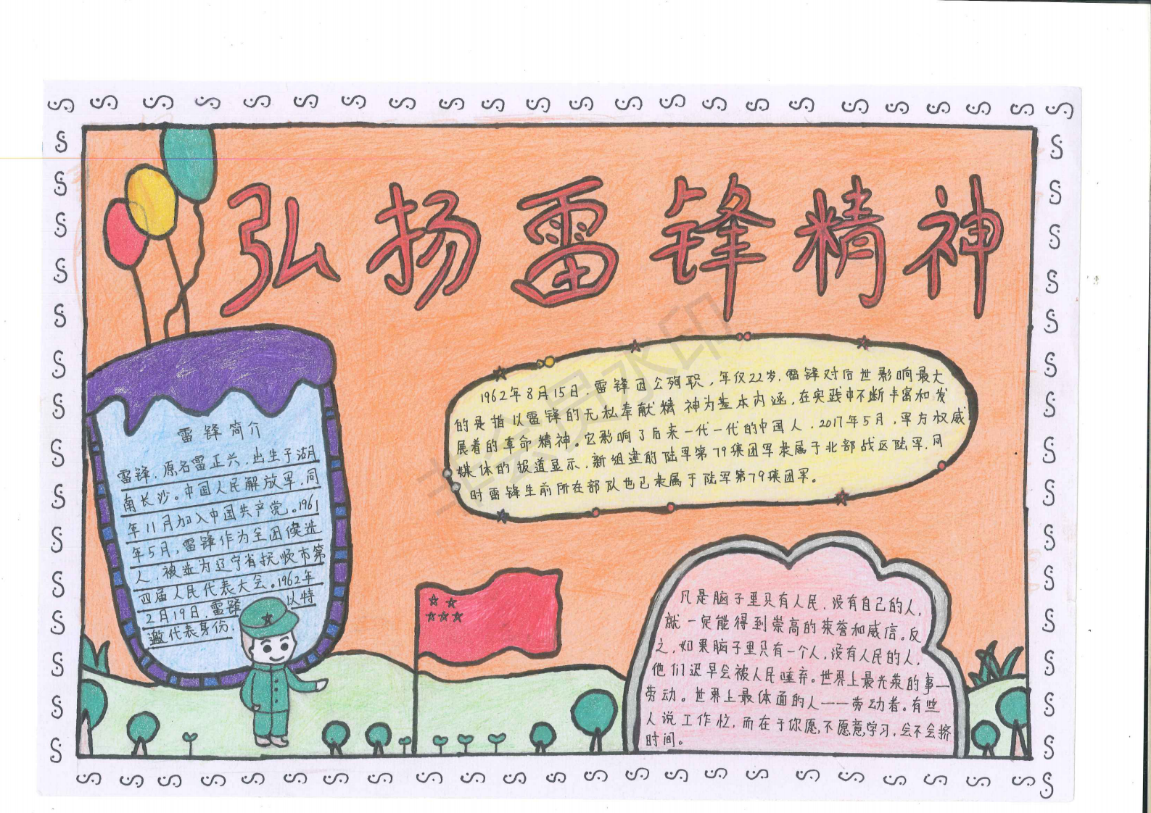 弘扬雷锋精神
雷锋简介
雷锋，原名雷正兴，出生于湖
南长沙。中国人民解放军，同
年11月加入中国共产党。1961
年5月，雷锋作为全团候选
人，被选为辽宁省抚顺市第
四届人民代表大会。1962年
2月19日，雷锋 以特
邀代表身份，
1962年8月15日，雷锋因公殉职，年仅22岁。雷锋对后世影响最大
的是指以雷锋的无私奉献精神为基本内涵，在实践中不断丰富和发
展着的革命精神。它影响了后来一代一代的中国人。2017年5月，军方权威
媒体的报道显示，新组建的陆军第79集团军隶属于北部战区陆军，同
时雷锋生前所在部队也已隶属于陆军第79集团军。
凡是脑子里只有人民、没有自己的人，
就一定能得到崇高的荣誉和威信。反
之，如果脑子里只有一个人，没有人民的人，
他们迟早会被人民唾弃。世界上最光荣的事——
劳动。世界上最体面的人——劳动者。有些
人说工作忙，而在于你愿不愿意学习，会不会挤
时间。
非会员水印